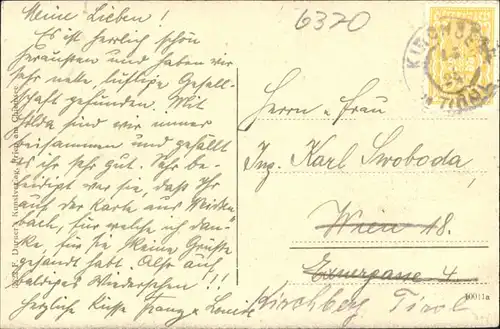 Meine Lieben!
Es ist herrlich schön
heraußen und haben wir
sehr nette, lustige Gesell-
schaft gefunden. Mit
Hilda sind wir immer
beisammen und gefällt
es ihr sehr gut. Sehr be-
leidigt war sie, daß Ihr
auf der Karte aus
bach, für welche ich dan-
ke, für sie keine Grüße
gesandt habt. Also auf
baldiges Wiedersehen!!!
Herzliche Küsse Franz u Louise
6370
KIRCHBERG
TIROL
Herrn u Frau
Ing. Karl Swoboda,
Wien 18.
4
Kirchberg Tirol
10011a